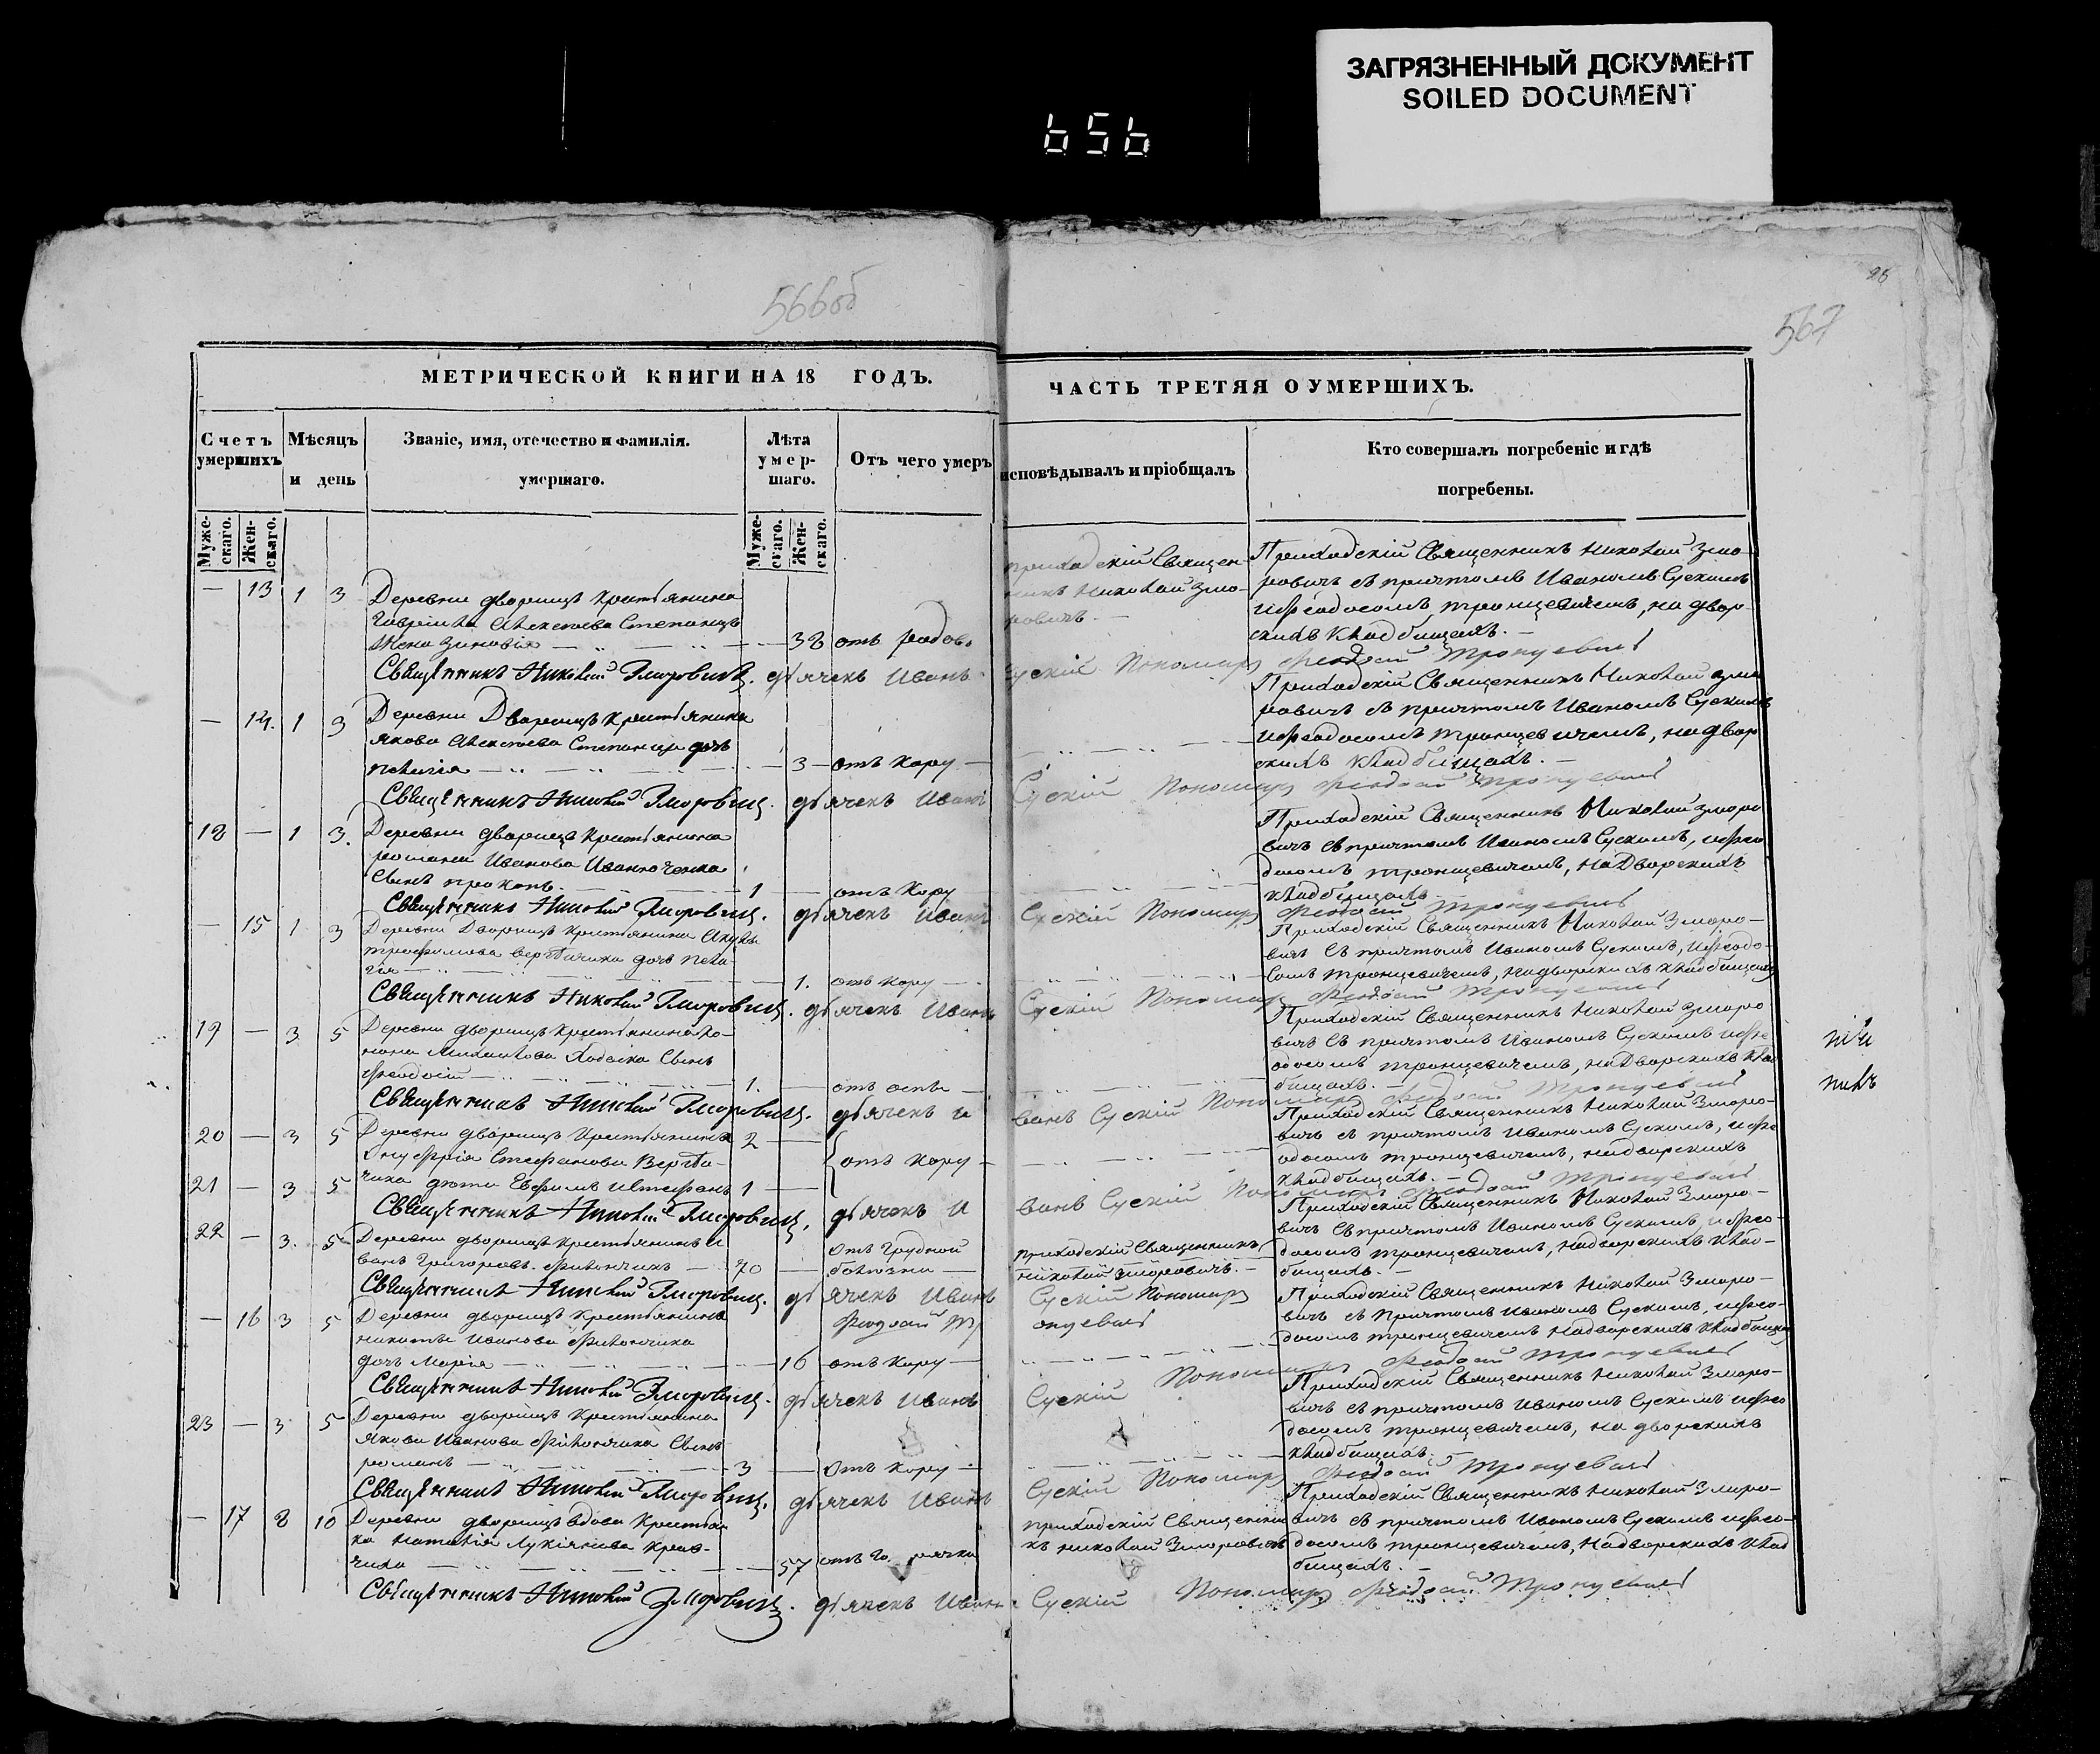 ЗАГРЯЗНЕННЫЙ ДОКУМЕНТ
SOILED DOCUMENT
656
28
566об
567
МЕТРИЧЕСКОЙ КНИГИ НА 18 ГОДЪ.
ЧАСТЬ ТРЕТЯЯ О УМЕРШИХЪ.
Счетъ умершихъ
Мѣсяцъ и день
Званіе, имя, отечество и фамилія.
умершаго.
Лѣта умер-
шаго.
Отъ чего умеръ
исповѣдывалъ и пріобщалъ
Кто совершалъ погребеніе и гдѣ
погребены.
Муже-
скаго.
Жен-
скаго.
Муже-
скаго.
Жен-
скаго.
— 13 1 3 Деревни дворицъ крестьянина
Гаврила Алексѣева Степанца
жена Зиновія 38 отъ родов.
приходскій Священ-
никъ Николай Змо-
ровичъ. —
Приходскій Священникъ Николай Змо-
ровичъ съ причтомъ Иваномъ Сускимъ
и Феодосомъ Тронцевичемъ, на двор-
скихъ кладбищахъ. —
Священникъ Николай Зморовичъ. дьячекъ Иванъ Сускій Пономарь Феодосій Тронцевичъ
— 14. 1 3 Деревни Дворицъ крестьянина
Якова Алексѣева Степанца дочь
Пелагія 3 — отъ кору —
Приходскій Священникъ Николай Змо
ровичъ съ причтомъ Иваномъ Сускимъ
и Феодосомъ Тронцевичемъ, на двор
скихъ кладбищахъ. —
Священникъ Николай Зморовичъ. дьячекъ Иванъ Сускій Пономарь Феодосій Тронцевичъ
18 — 1 3. Деревни дворицъ крестьянина
Романа Иванова Иванюченка
Сынъ Прокопъ. 1 — отъ кору
Приходскій Священникъ Николай Зморо
вичъ съ причтомъ Иваномъ Сускимъ, и Фео
досомъ Тронцевичемъ, на Дворскихъ
кладбищахъ
Священникъ Николай Зморовичъ. дьячекъ Иванъ Сускій Пономарь Феодосій Тронцевичъ
— 15 1 3 Деревни Дворицъ крестьянина
Трофимова дочь Пела-
гія 1. отъ кору —
Приходскій Священникъ Николай Зморо-
вичъ съ причтомъ Иваномъ Сускимъ, и Феодо-
сомъ Тронцевичемъ, на дворскихъ кладбищахъ
Священникъ Николай Зморовичъ. дьячекъ Иванъ Сускій Пономарь Феодосій Тронцевичъ
19 — 3 5 Деревни дворицъ крестьянина Ро-
мана Михайлова Сынъ
Феодосій 1. — отъ оспы —
Приходскій Священникъ Николай Зморо
вичъ съ причтомъ Иваномъ Сускимъ и Фе
одосомъ Тронцевичемъ, на Дворскихъ клад
бищахъ. —
Священникъ Николай Зморовичъ. дьячекъ И
ванъ Сускій Пономарь Феодосій Тронцевичъ
20 — 3 5 Деревни дворицъ крестьянина 2 —
Онуфрія Стефанова Вергѣй-
21 — 3 5 чика дѣти Евфимъ и Стефанъ 1 —
отъ кору —
Приходскій Священникъ Николай Зморо-
вичъ съ причтомъ Иваномъ Сускимъ, и Фе
одосомъ Тронцевичемъ, на дворскихъ
кладбищахъ. —
Священникъ Николай Зморовичъ, дьячекъ И
ванъ Сускій Пономарь Феодосій Тронцевичъ
22 — 3. 5 Деревни дворицъ крестьянинъ И
ванъ Григоровъ Филончикъ — 70 —
отъ грудной
болѣзни —
приходскій Священникъ
Николай Зморовичъ. —
Приходскій Священникъ Николай Зморо-
вичъ съ причтомъ Иваномъ Сускимъ, и Фео-
досомъ Тронцевичемъ, на дворскихъ клад-
бищахъ. —
Священникъ Николай Зморовичъ. дьячекъ Иванъ Сускій Пономарь
Феодосій Тр
онцевичъ
— 16 3 5 Деревни дворицъ крестьянина
Никиты Иванова Филончика
дочь Марія 16 отъ кору —
Приходскій Священникъ Николай Зморо-
вичъ съ причтомъ Иваномъ Сускимъ, и Фео-
досомъ Тронцевичемъ на дворскихъ кладбищах
Священникъ Николай Зморовичъ. дьячекъ Иванъ Сускій Пономарь Феодосій Тронцевичъ
23 — 3 5 Деревни дворицъ крестьянина
Якова Иванова Филончика Сынъ
Романъ 3 — отъ кору —
Приходскій Священникъ Николай Зморо-
вичъ съ причтомъ Иваномъ Сускимъ и Фео
досомъ Тронцевичемъ, на дворскихъ
кладбищахъ.
Священникъ Николай Зморовичъ, дьячекъ Иванъ Сускій Пономарь Феодосій Тронцевичъ
— 17 8 10 Деревни дворицъ вдова крестьян
ка Наталія Лукіянова Крав-
чиха 57 отъ горячки
приходскій Священни
къ Николай Зморовичъ
Приходскій Священникъ Николай Зморо-
вичъ съ причтомъ Иваномъ Сускимъ и Фео-
досомъ Тронцевичемъ, на дворскихъ клад
бищахъ. —
Священникъ Николай Зморовичъ. дьячекъ Иванъ Сускій Пономарь Феодосій Тронцевичъ